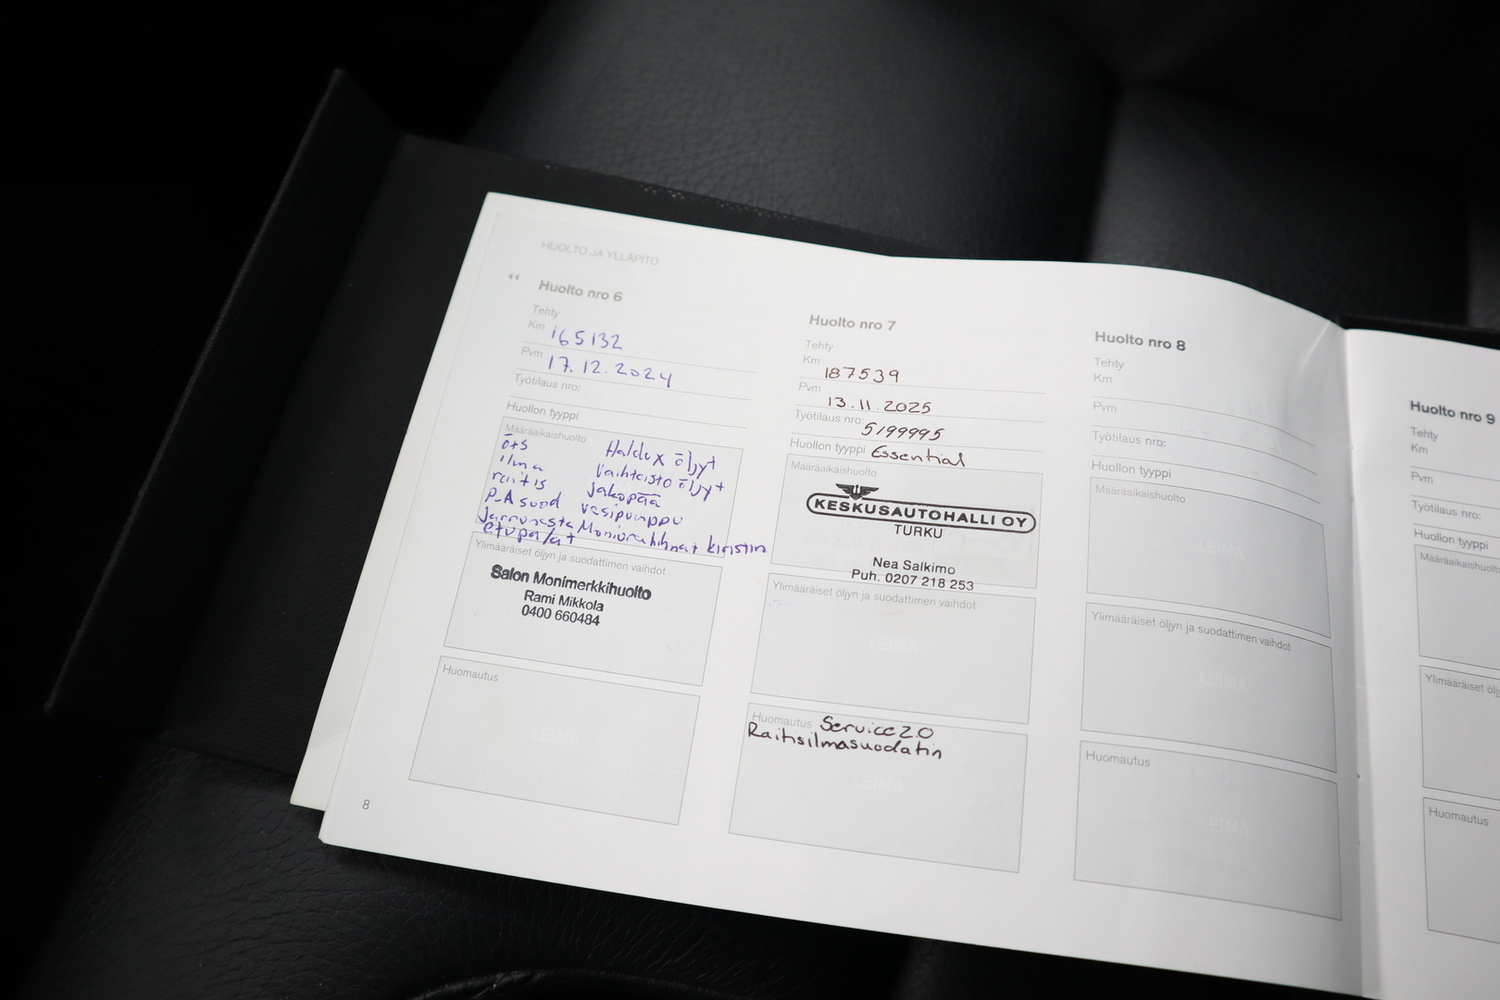 HUOLTO JA YLLÄPITO
Huolto nro 6
Tehty
Km 165132
Pvm 17.12.2024
Työtilaus nro:
Huollon tyyppi
Määräaikaishuolto
öts
ilma
raitis
P-A suod
Jarrunesta
etupalat
Haldex öljyt
Vaihteisto öljyt
Jakopää
vesipumppu
Moniurahihnat kiristin
Ylimääräiset öljyn ja suodattimen vaihdot
Salon Monimerkkihuolto
Rami Mikkola
0400 660484
Huomautus
LEIMA
8
Huolto nro 7
Tehty
Km 187539
Pvm 13.11.2025
Työtilaus nro: 5199995
Huollon tyyppi Essential
Määräaikaishuolto
KESKUSAUTOHALLI OY
TURKU
Nea Salkimo
Puh. 0207 218 253
Ylimääräiset öljyn ja suodattimen vaihdot
LEIMA
Huomautus Service 2.0
Raitisilmasuodatin
LEIMA
Huolto nro 8
Tehty
Km
Pvm
Työtilaus nro:
Huollon tyyppi
Määräaikaishuolto
LEIMA
Ylimääräiset öljyn ja suodattimen vaihdot
LEIMA
Huomautus
LEIMA
Huolto nro 9
Tehty
Km
Pvm
Työtilaus nro:
Huollon tyyppi
Määräaikaishuolto
Ylimääräiset
Huomautus